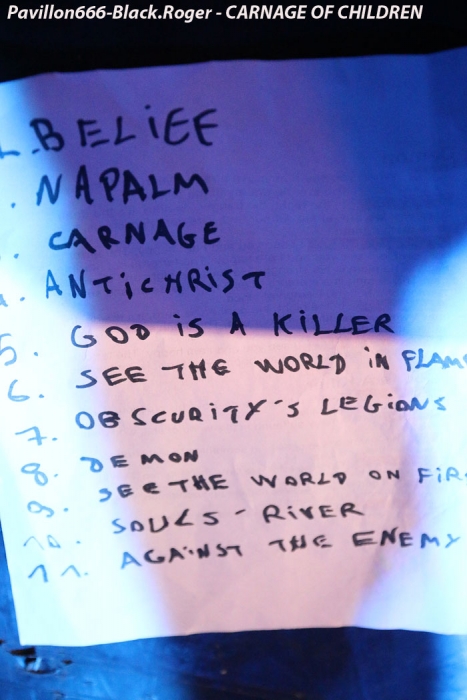 Pavillon666-Black.Roger - CARNAGE OF CHILDREN
BELIEF
NAPALM
CARNAGE
ANTiCHRiST
5. GOD iS A KiLLER
6. SEE THE WORLD iN FLAM
7. OBSCURiTY'S LEGiONS
8. DEMON
9. SEE THE WORLD ON FiR
10. SOULS - RiVER
11. AGAiNST THE ENEMY